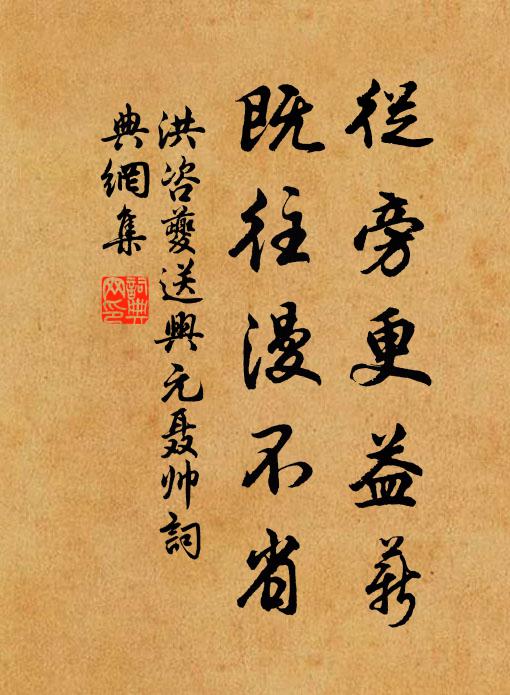 從旁更益薪
既往漫不省
洪咨夔送興元聂帅詞
典網集
詞典網印